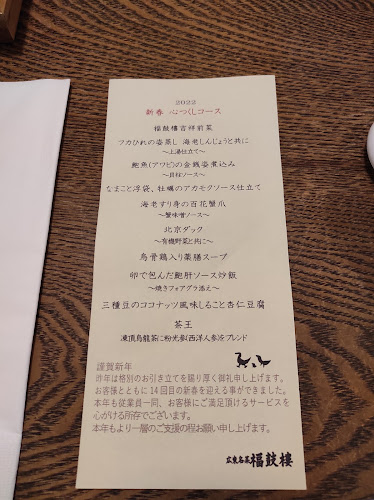 2022
新春 心つくしコース
福鼓樓吉祥前菜
フカひれの姿蒸し 海老しんじょうと共に
～上湯仕立て～
鮑魚(アワビ)の金銭姿煮込み
～貝柱ソース～
なまこと浮袋、牡蠣のアカモクソース仕立て
海老すり身の百花蟹爪
～蟹味噌ソース～
北京ダック
～有機野菜と共に～
烏骨鶏入り薬膳スープ
卵で包んだ鮑肝ソース炒飯
～焼きフォアグラ添え～
三種豆のココナッツ風味しること杏仁豆腐
茶王
凍頂烏龍茶に粉光参(西洋人参)をブレンド
謹賀新年
昨年は格別のお引き立てを賜り厚く御礼申し上げます。
お客様とともに14回目の新春を迎える事ができました。
本年も従業員一同、お客様にご満足頂けるサービスを
心がける所存でございます。
本年もより一層のご支援の程お願い申し上げます。
広東名菜 福鼓樓